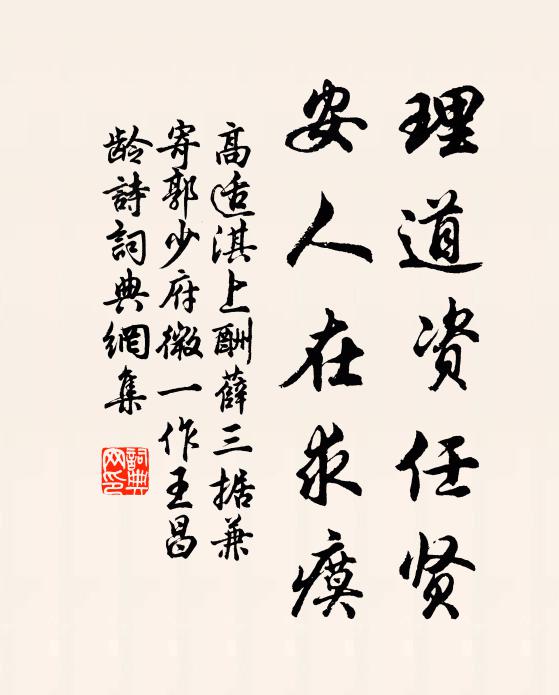 理道资任贤
安人在求瘼
高适淇上酬薛三据兼
寄郭少府微一作王昌
龄詩詞典網集
詞典網印